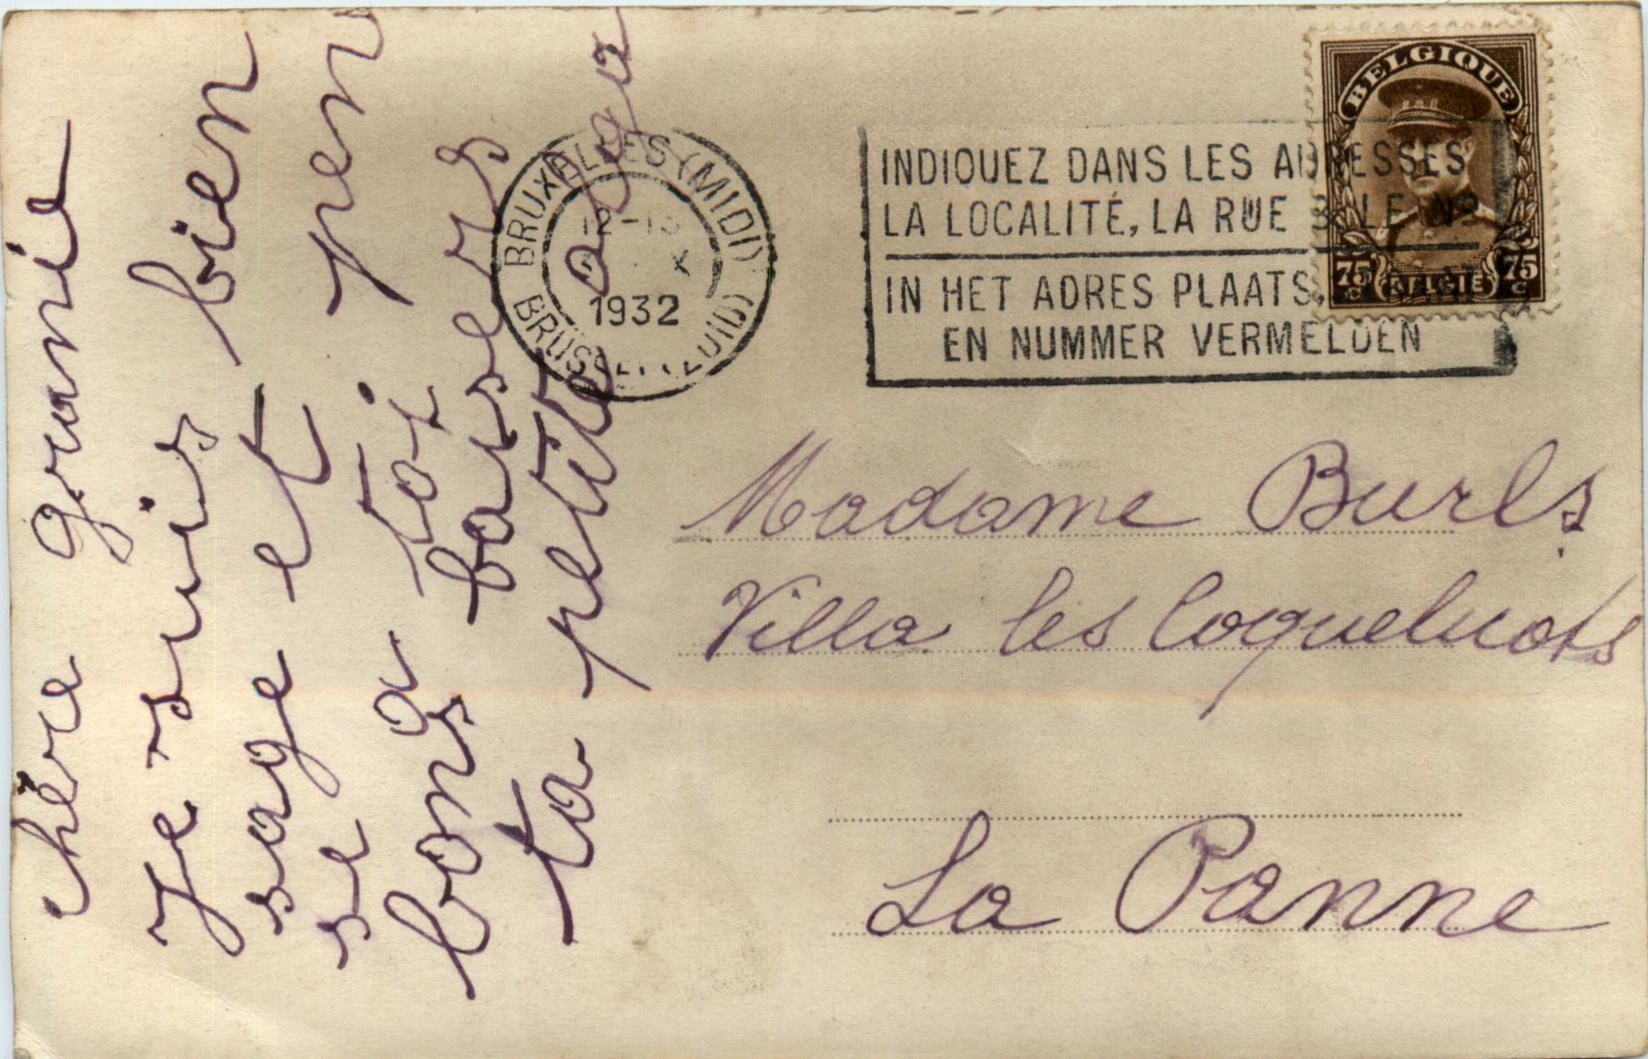 chère granie
je suis bien
sage et pen
se a toi
bons baisers
ta petite
BRUXELLES (MIDI)
12-13
X
1932
BRUSSEL (ZUID)
INDIQUEZ DANS LES ADRESSES
LA LOCALITÉ, LA RUE & LE No
IN HET ADRES PLAATS,
EN NUMMER VERMELDEN
BELGIQUE
75 c BELGIË 75 c
Madame Burls
Villa les Coquelicots
La Panne